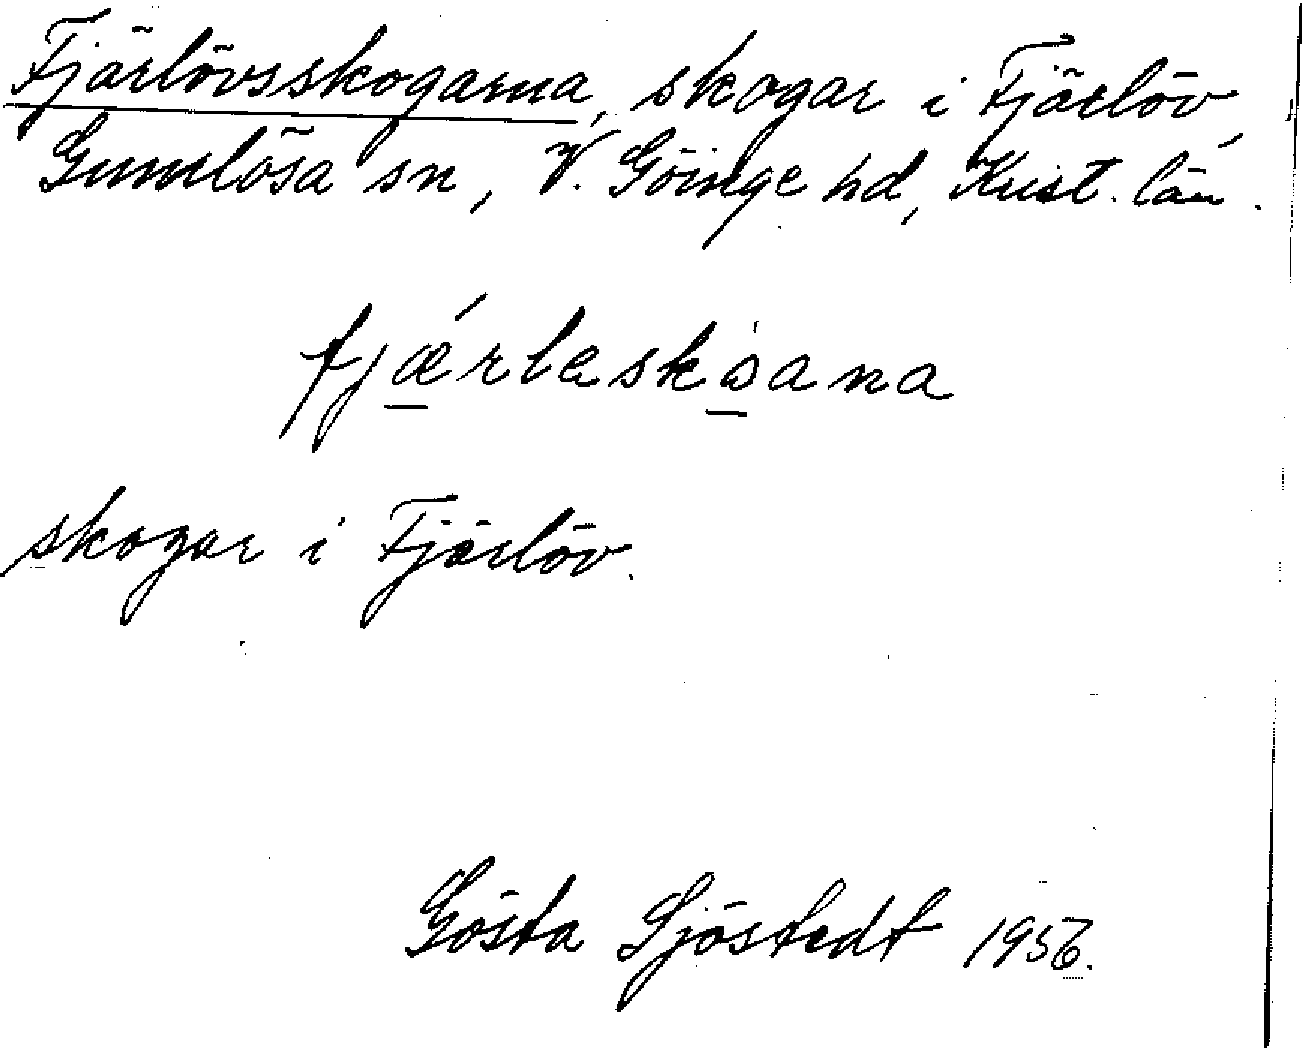 Fjärlövsskogarna, skogar i Fjärlöv,
Gumlösa sn, V. Göinge hd, Krist. län.
fjǽ̠rlask̠åana
skogar i Fjärlöv.
Gösta Sjöstedt 1956.